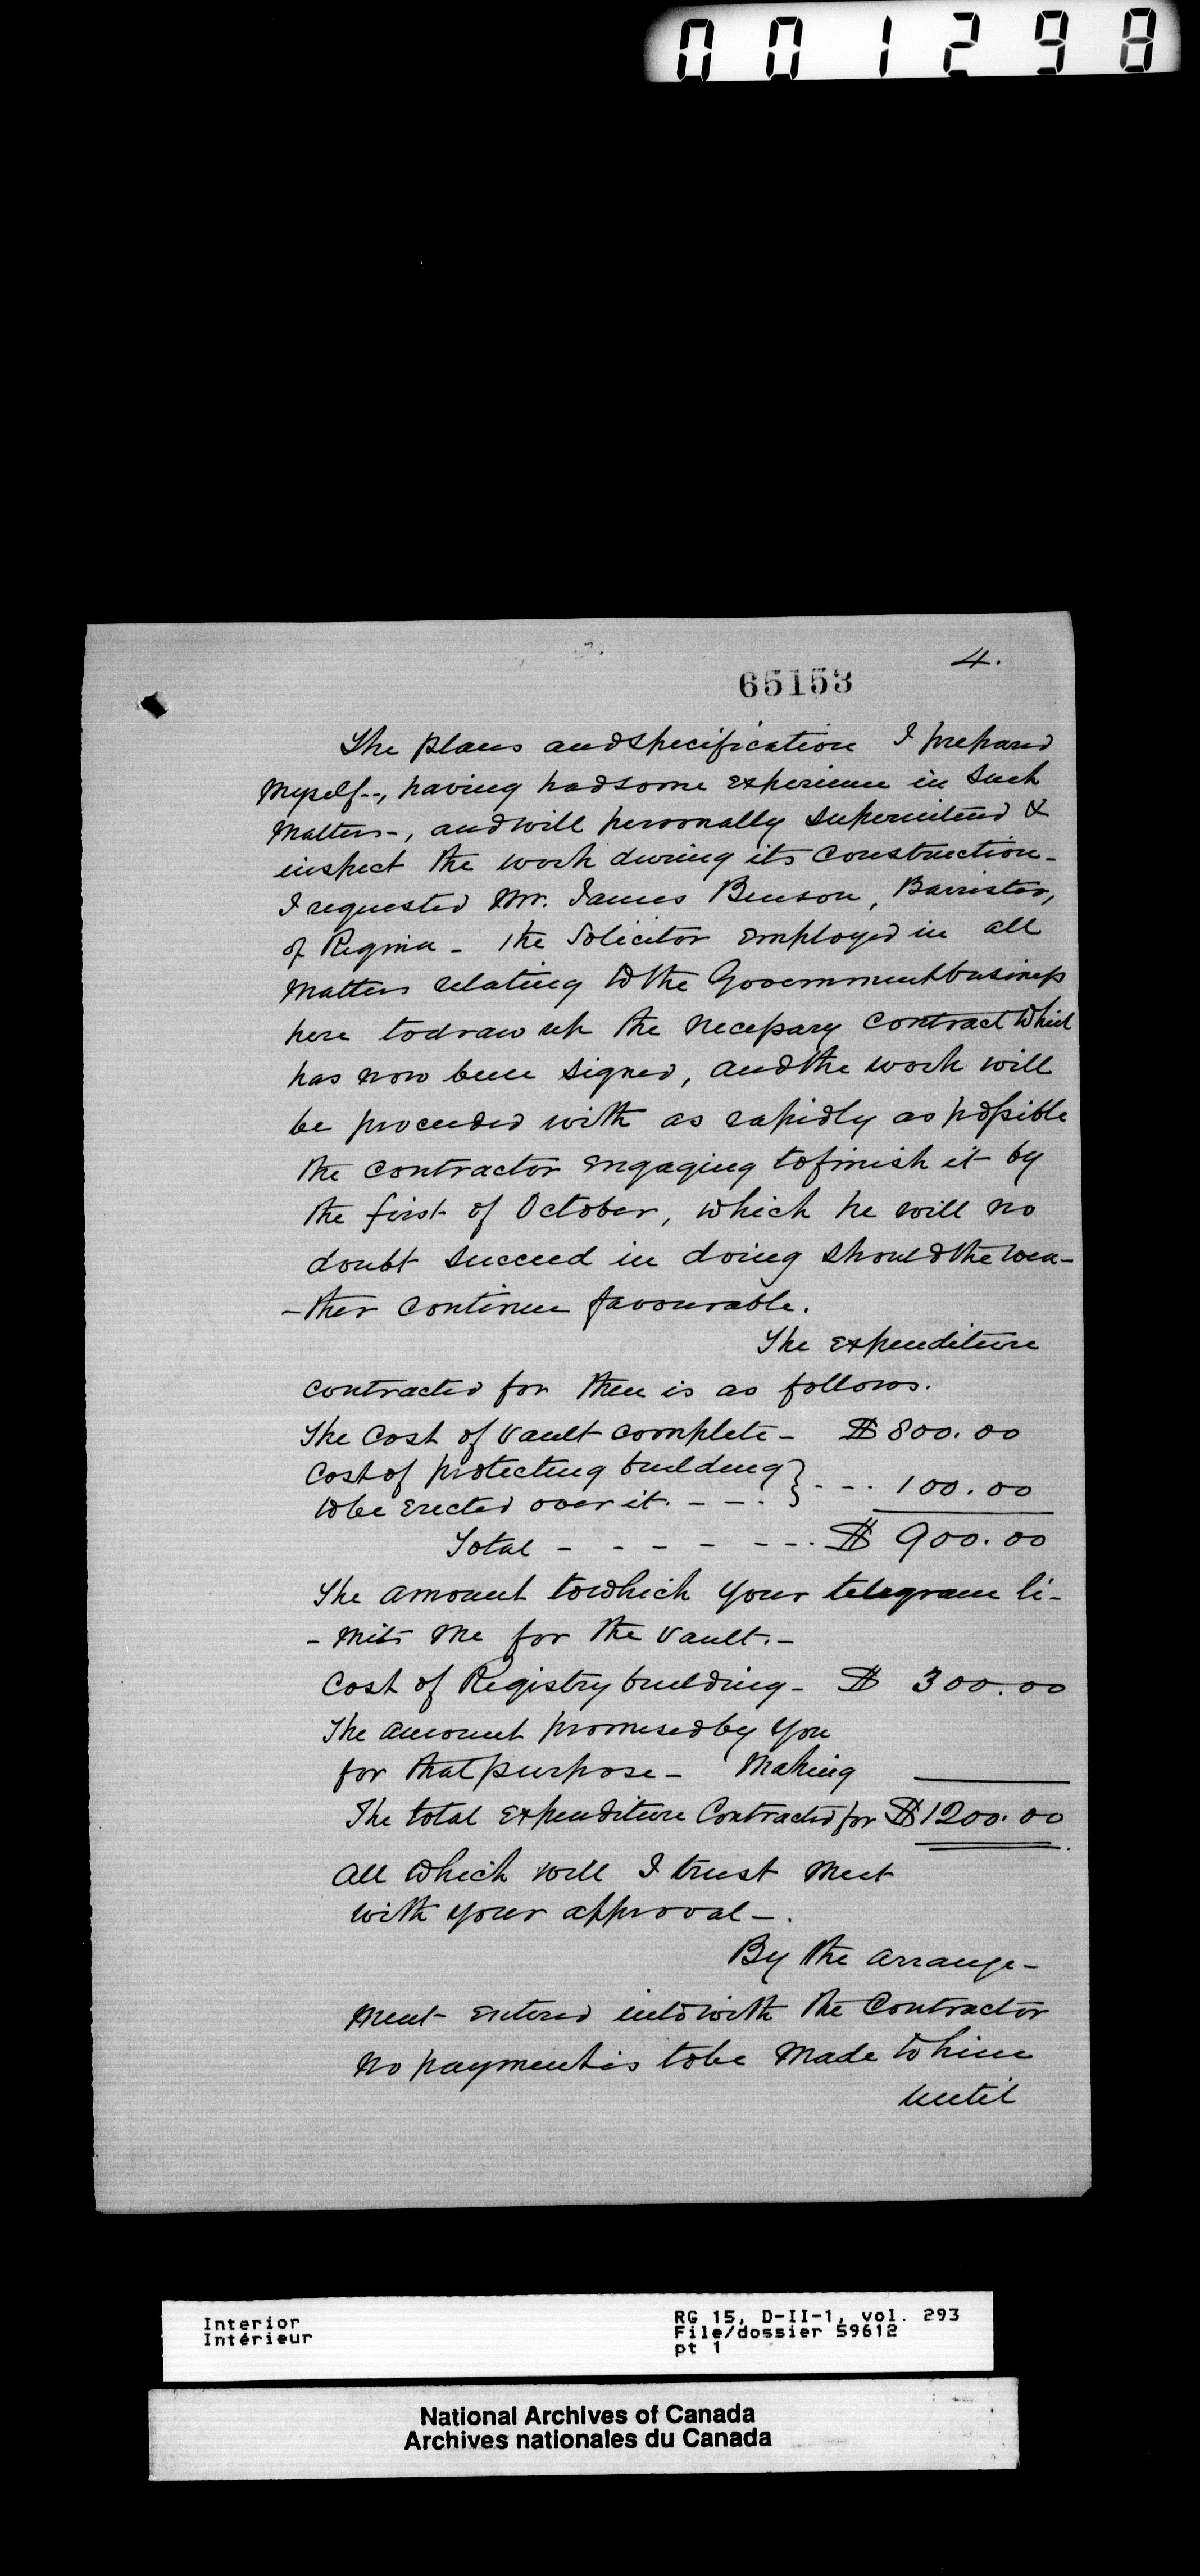 001298
4.
65153
The plans and specification I prepared
Myself--, having had some experience in such
Matters-, and will personally superintend &
inspect the work during its construction-
I requested Mr. James Benson, Barrister,
of Regina - the Solicitor employed in all
Matters relating to the Government business
here to draw up the necessary contract which
has now been signed, and the work will
be proceeded with as rapidly as possible
the contractor engaging to finish it by
the first of October, which he will no
doubt succeed in doing should the wea-
-ther continue favourable.
The expenditure
contracted for then is as follows.
The Cost of Vault complete - $800.00
Cost of protecting building } - - . 100.00
to be erected over it. - - .
Total - - - - - - - . $ 900.00
The amount to which your telegram li-
-mits me for the Vault.-
Cost of Registry building - $ 300.00
The amount promised by you
for that purpose - Making
The total expenditure Contracted for $1200.00
All which will I trust meet
with your approval -.
By the arrange-
ment entered into with the Contractor
no payment is to be made to him
until
Interior
Intérieur
RG 15, D-II-1, vol. 293
File/dossier 59612
pt 1
National Archives of Canada
Archives nationales du Canada